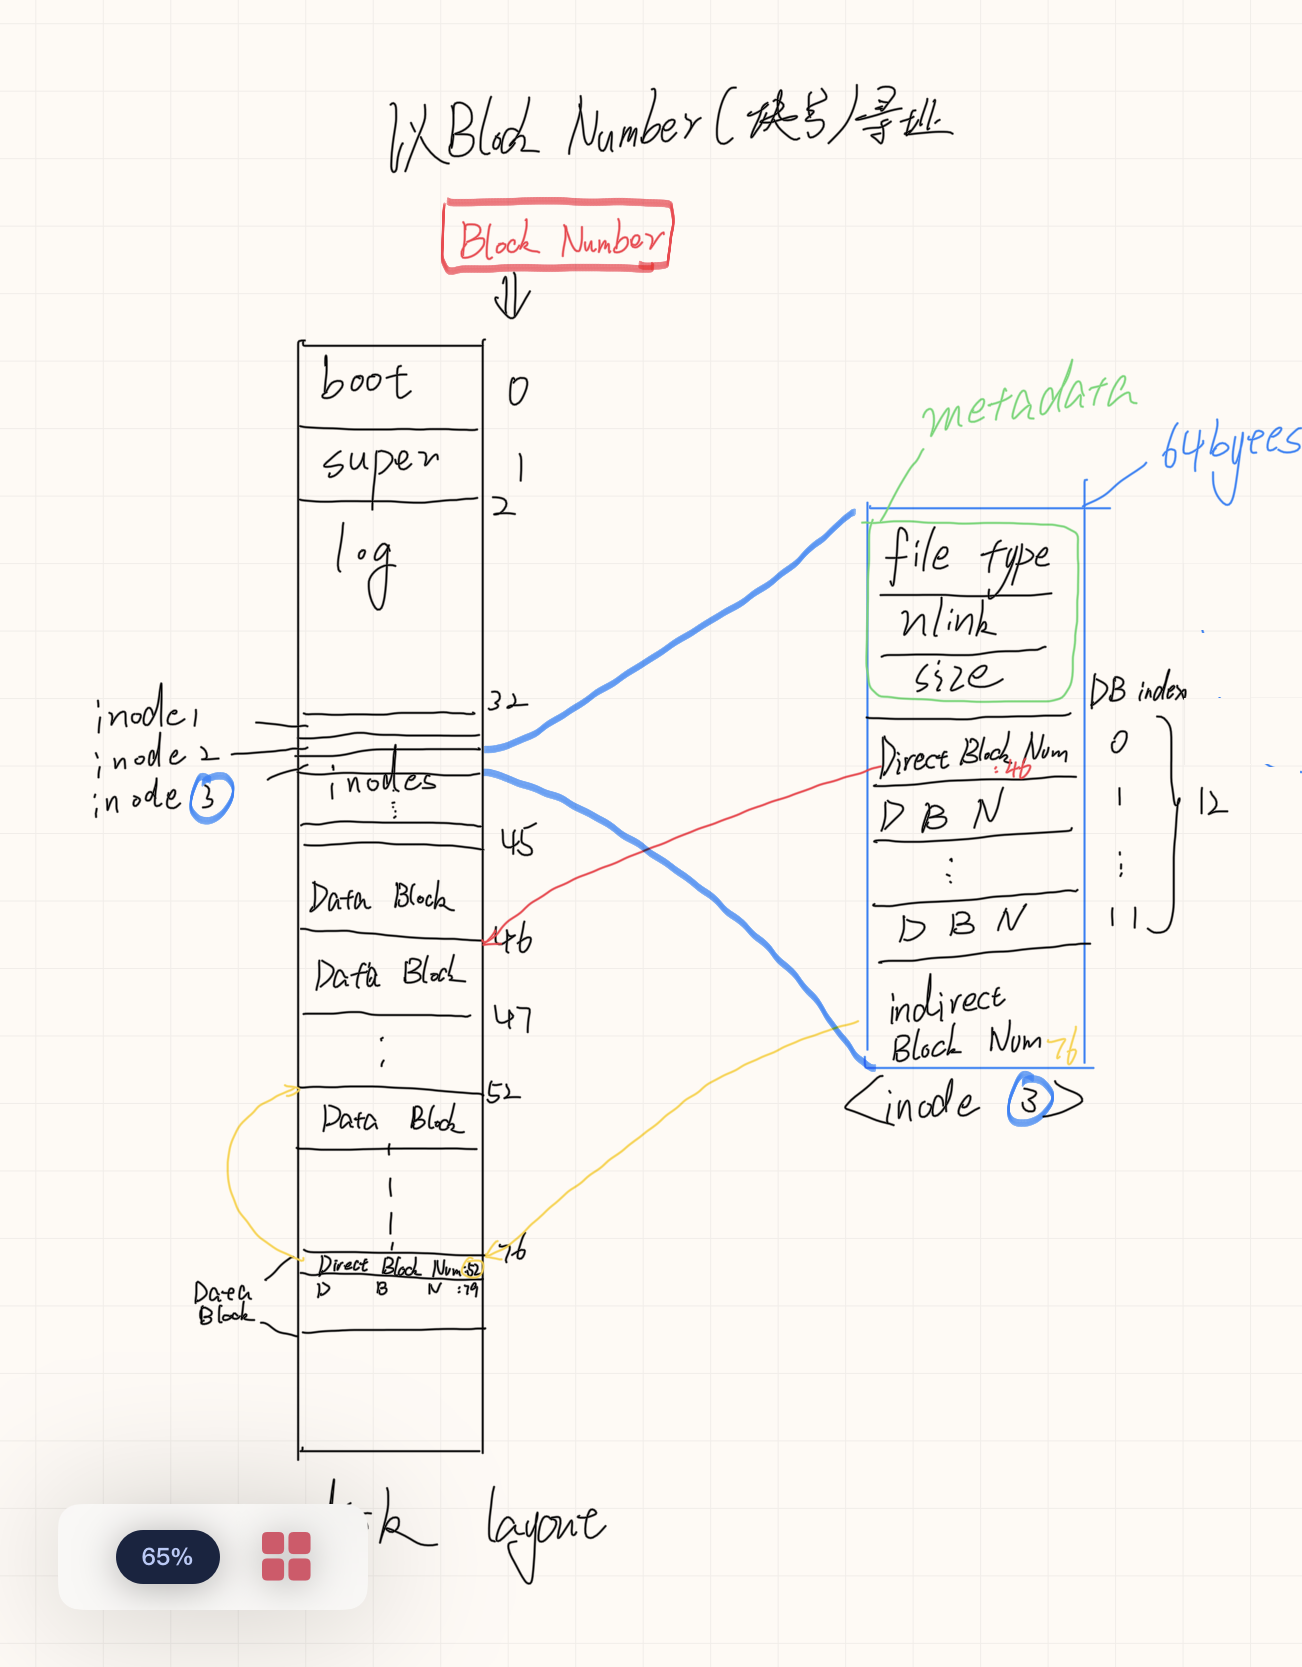 以Block Number(块号)寻址
Block Number
boot 0
super 1
2
log
32
inode 1
inode 2
inode 3
inodes
45
Data Block
46
Data Block
47
52
Data Block
76
Direct Block Num:52
D B N :79
Data
Block
layout
65%
metadata
64byees
file type
nlink
size
DB index
Direct Block Num 0
:46
D B N 1
12
D B N 11
indirect
Block Num 76
<inode 3>